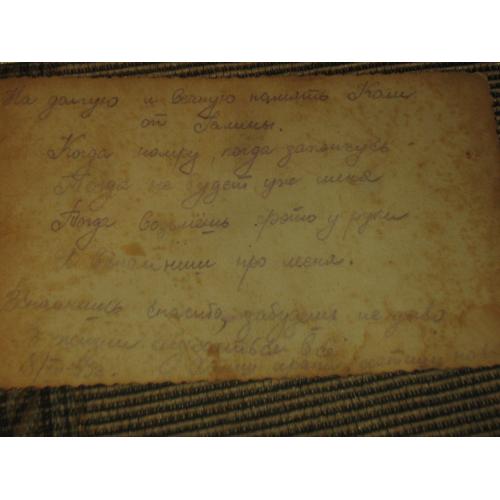 На долгую и вечную память Коли
от Галины.
Когда помру, когда
Тогда не будет уже меня
Тогда возьмёшь фото у руки
И вспомниш про меня.
Вспомнишь спасибо, забудешь не диво
В жизни все